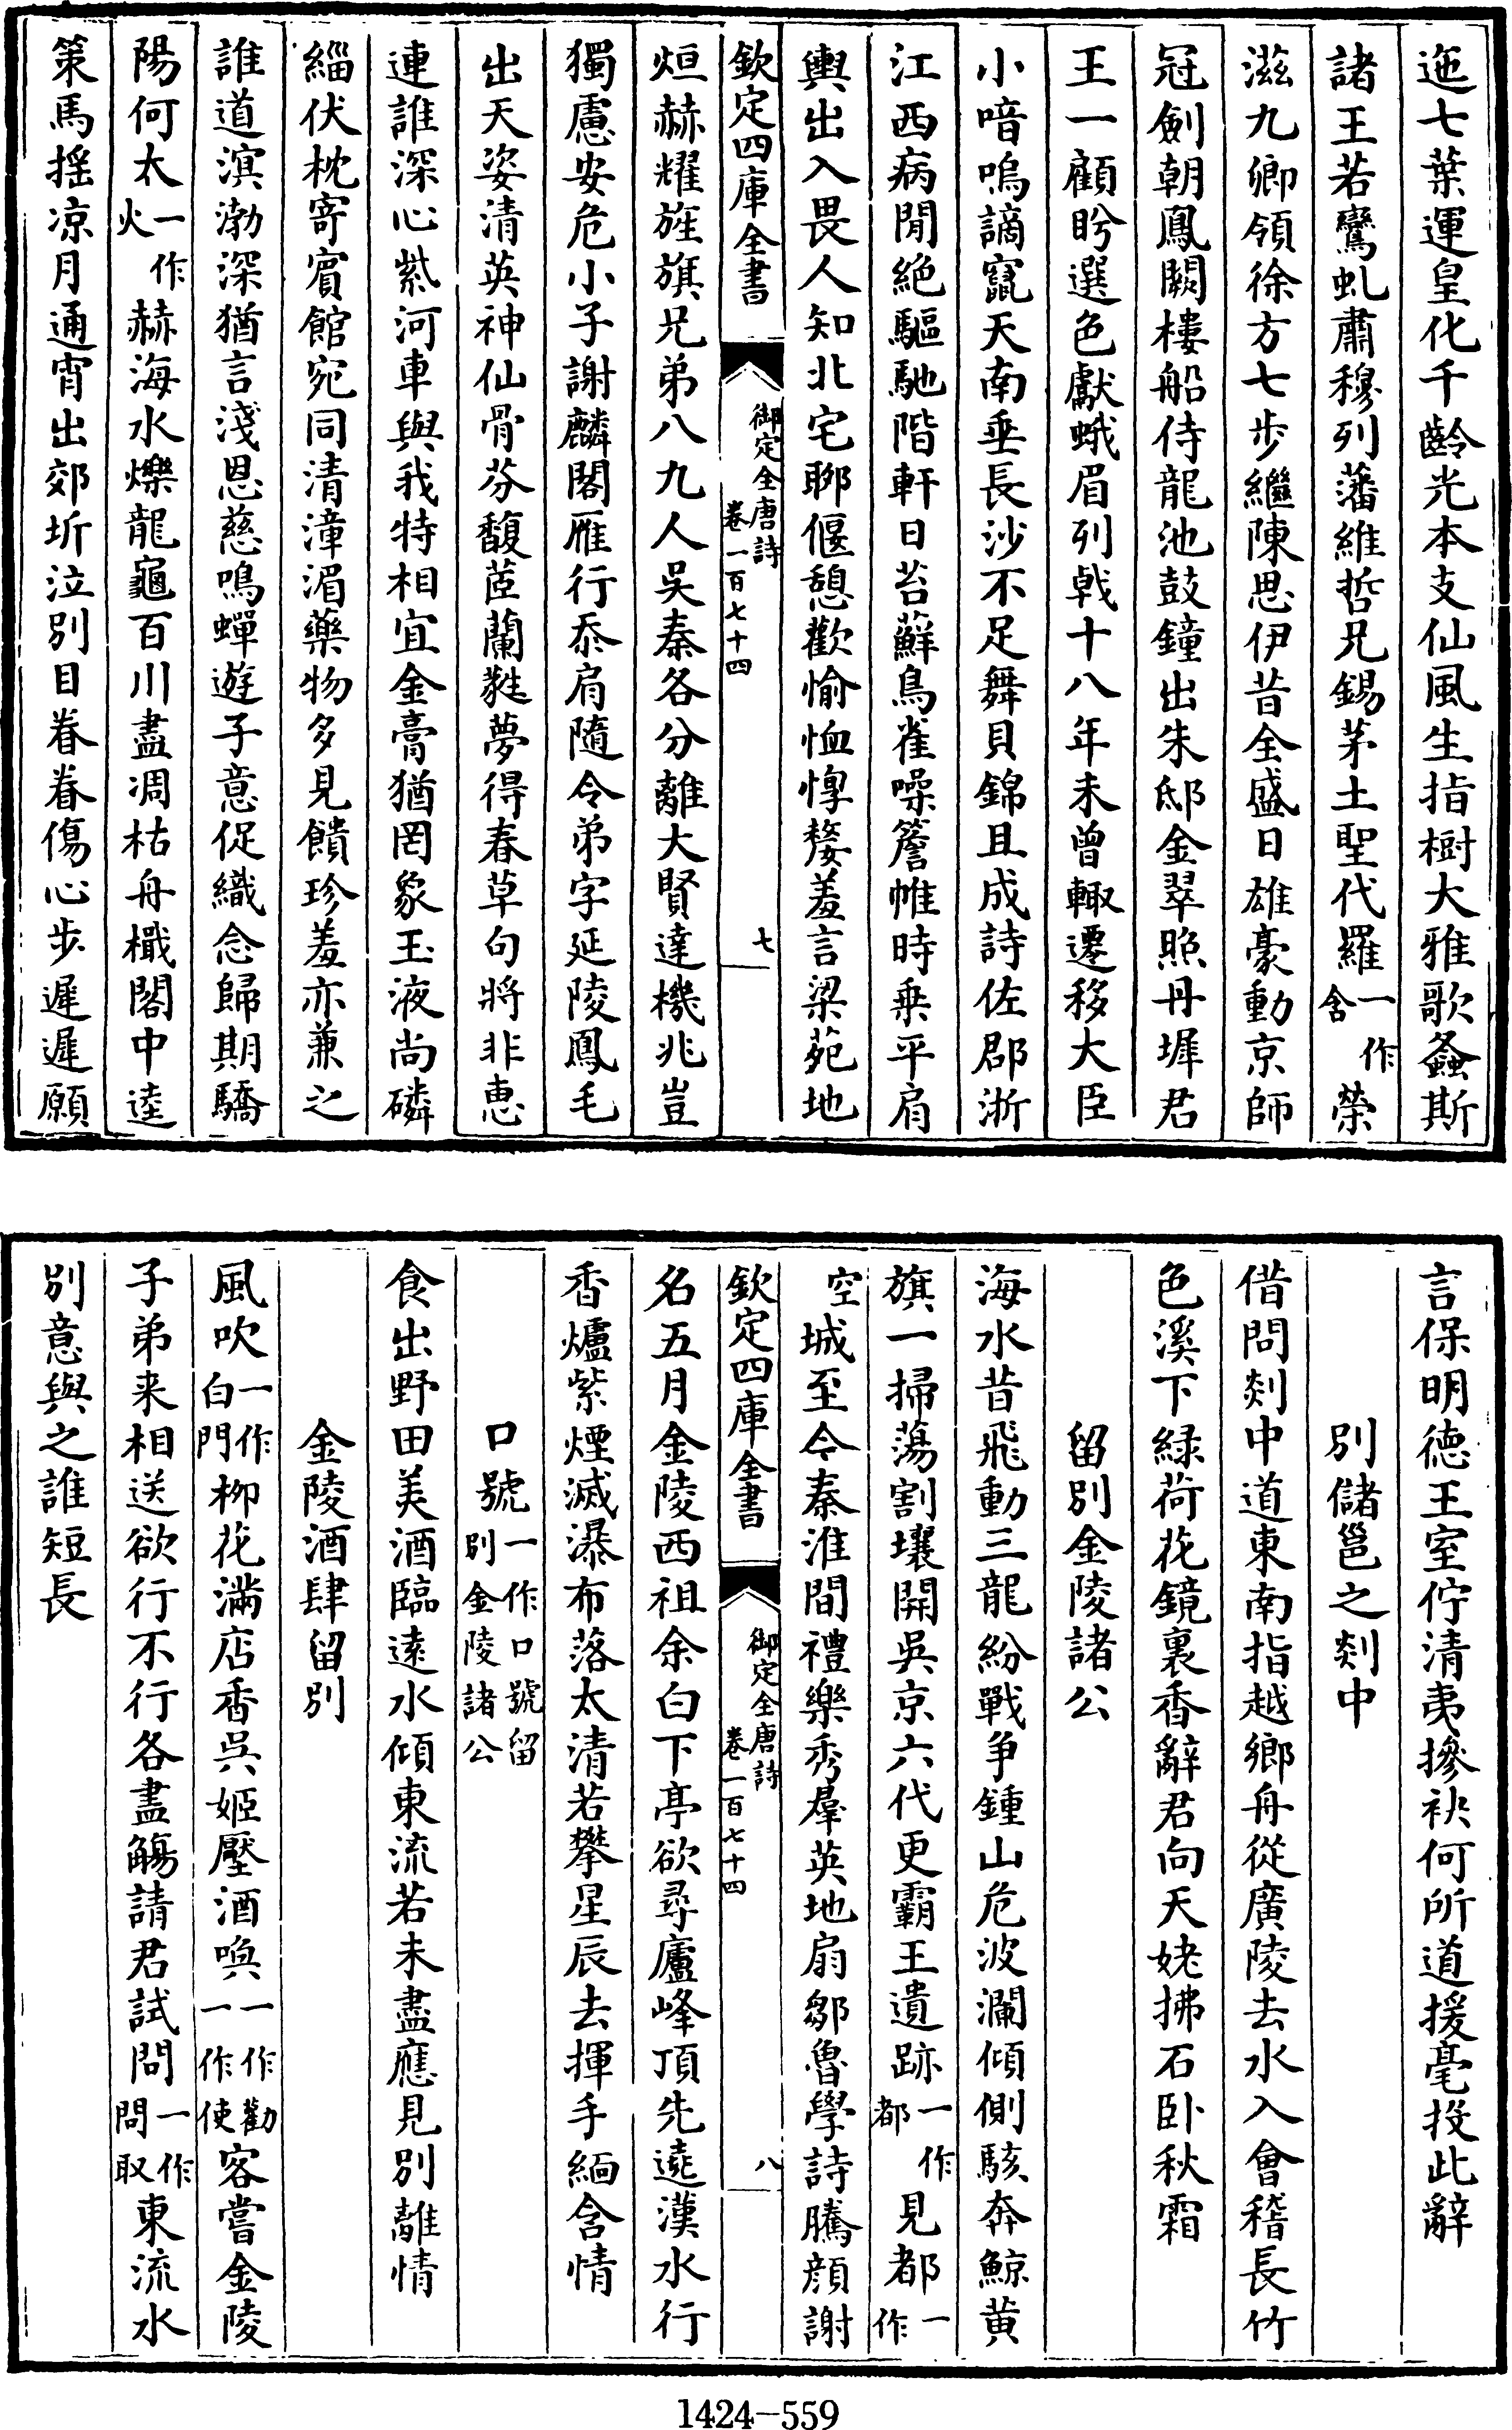 迤七葉運皇化千齡光本支仙風生指樹大雅歌螽斯
諸王若鸞虬肅穆列藩維哲兄錫茅土聖代羅一作含榮
滋九卿領徐方七步繼陳思伊昔全盛日雄豪動京師
冠劍朝鳳闕樓船侍龍池鼓鐘出朱邸金翠照丹墀君
王一顧盼選色獻蛾眉列戟十八年未曾輙遷移大臣
小喑嗚謫竄天南垂長沙不足舞貝錦且成詩佐郡浙
江西病閒絶驅馳階軒日苔蘚鳥雀噪簷帷時乗平肩
輿出入畏人知北宅聊偃憩歡愉恤惸嫠羞言梁苑地
欽定四庫全書
御定全唐詩
卷一百七十四
七
烜赫耀旌旗兄弟八九人吳秦各分離大賢達機兆豈
獨慮安危小子謝麟閣雁行忝肩隨令弟字延陵鳳毛
出天姿清英神仙骨芬馥茝蘭蕤夢得春草句將非恵
連誰深心紫河車與我特相宜金膏猶罔象玉液尚磷
緇伏枕寄賓館宛同清漳湄藥物多見饋珍羞亦兼之
誰道溟渤深猶言淺恩慈鳴蟬遊子意促織念歸期驕
陽何太一作火赫海水爍龍龜百川盡凋枯舟檝閣中逵
策馬揺凉月通宵出郊圻泣別目眷眷傷心步遲遲願
言保明徳王室佇清夷摻袂何所道援毫投此辭
別儲邕之剡中
借問剡中道東南指越鄉舟從廣陵去水入會稽長竹
色溪下緑荷花鏡裏香辭君向天姥拂石卧秋霜
留別金陵諸公
海水昔飛動三龍紛戰争鍾山危波瀾傾側駭奔鯨黄
旗一掃蕩割壤開吳京六代更霸王遺跡一作都見都一作
空城至今秦淮間禮樂秀羣英地扇鄒魯學詩騰顔謝
欽定四庫全書
御定全唐詩
卷一百七十四
八
名五月金陵西祖余白下亭欲尋廬峰頂先遶漢水行
香爐紫煙滅瀑布落太清若攀星辰去揮手緬含情
口號一作口號留別金陵諸公
食出野田美酒臨遠水傾東流若未盡應見別離情
金陵酒肆留別
風吹一作白門柳花滿店香吳姬壓酒喚一作勸一作使客嘗金陵
子弟来相送欲行不行各盡觴請君試問一作問取東流水
別意與之誰短長
1424-559